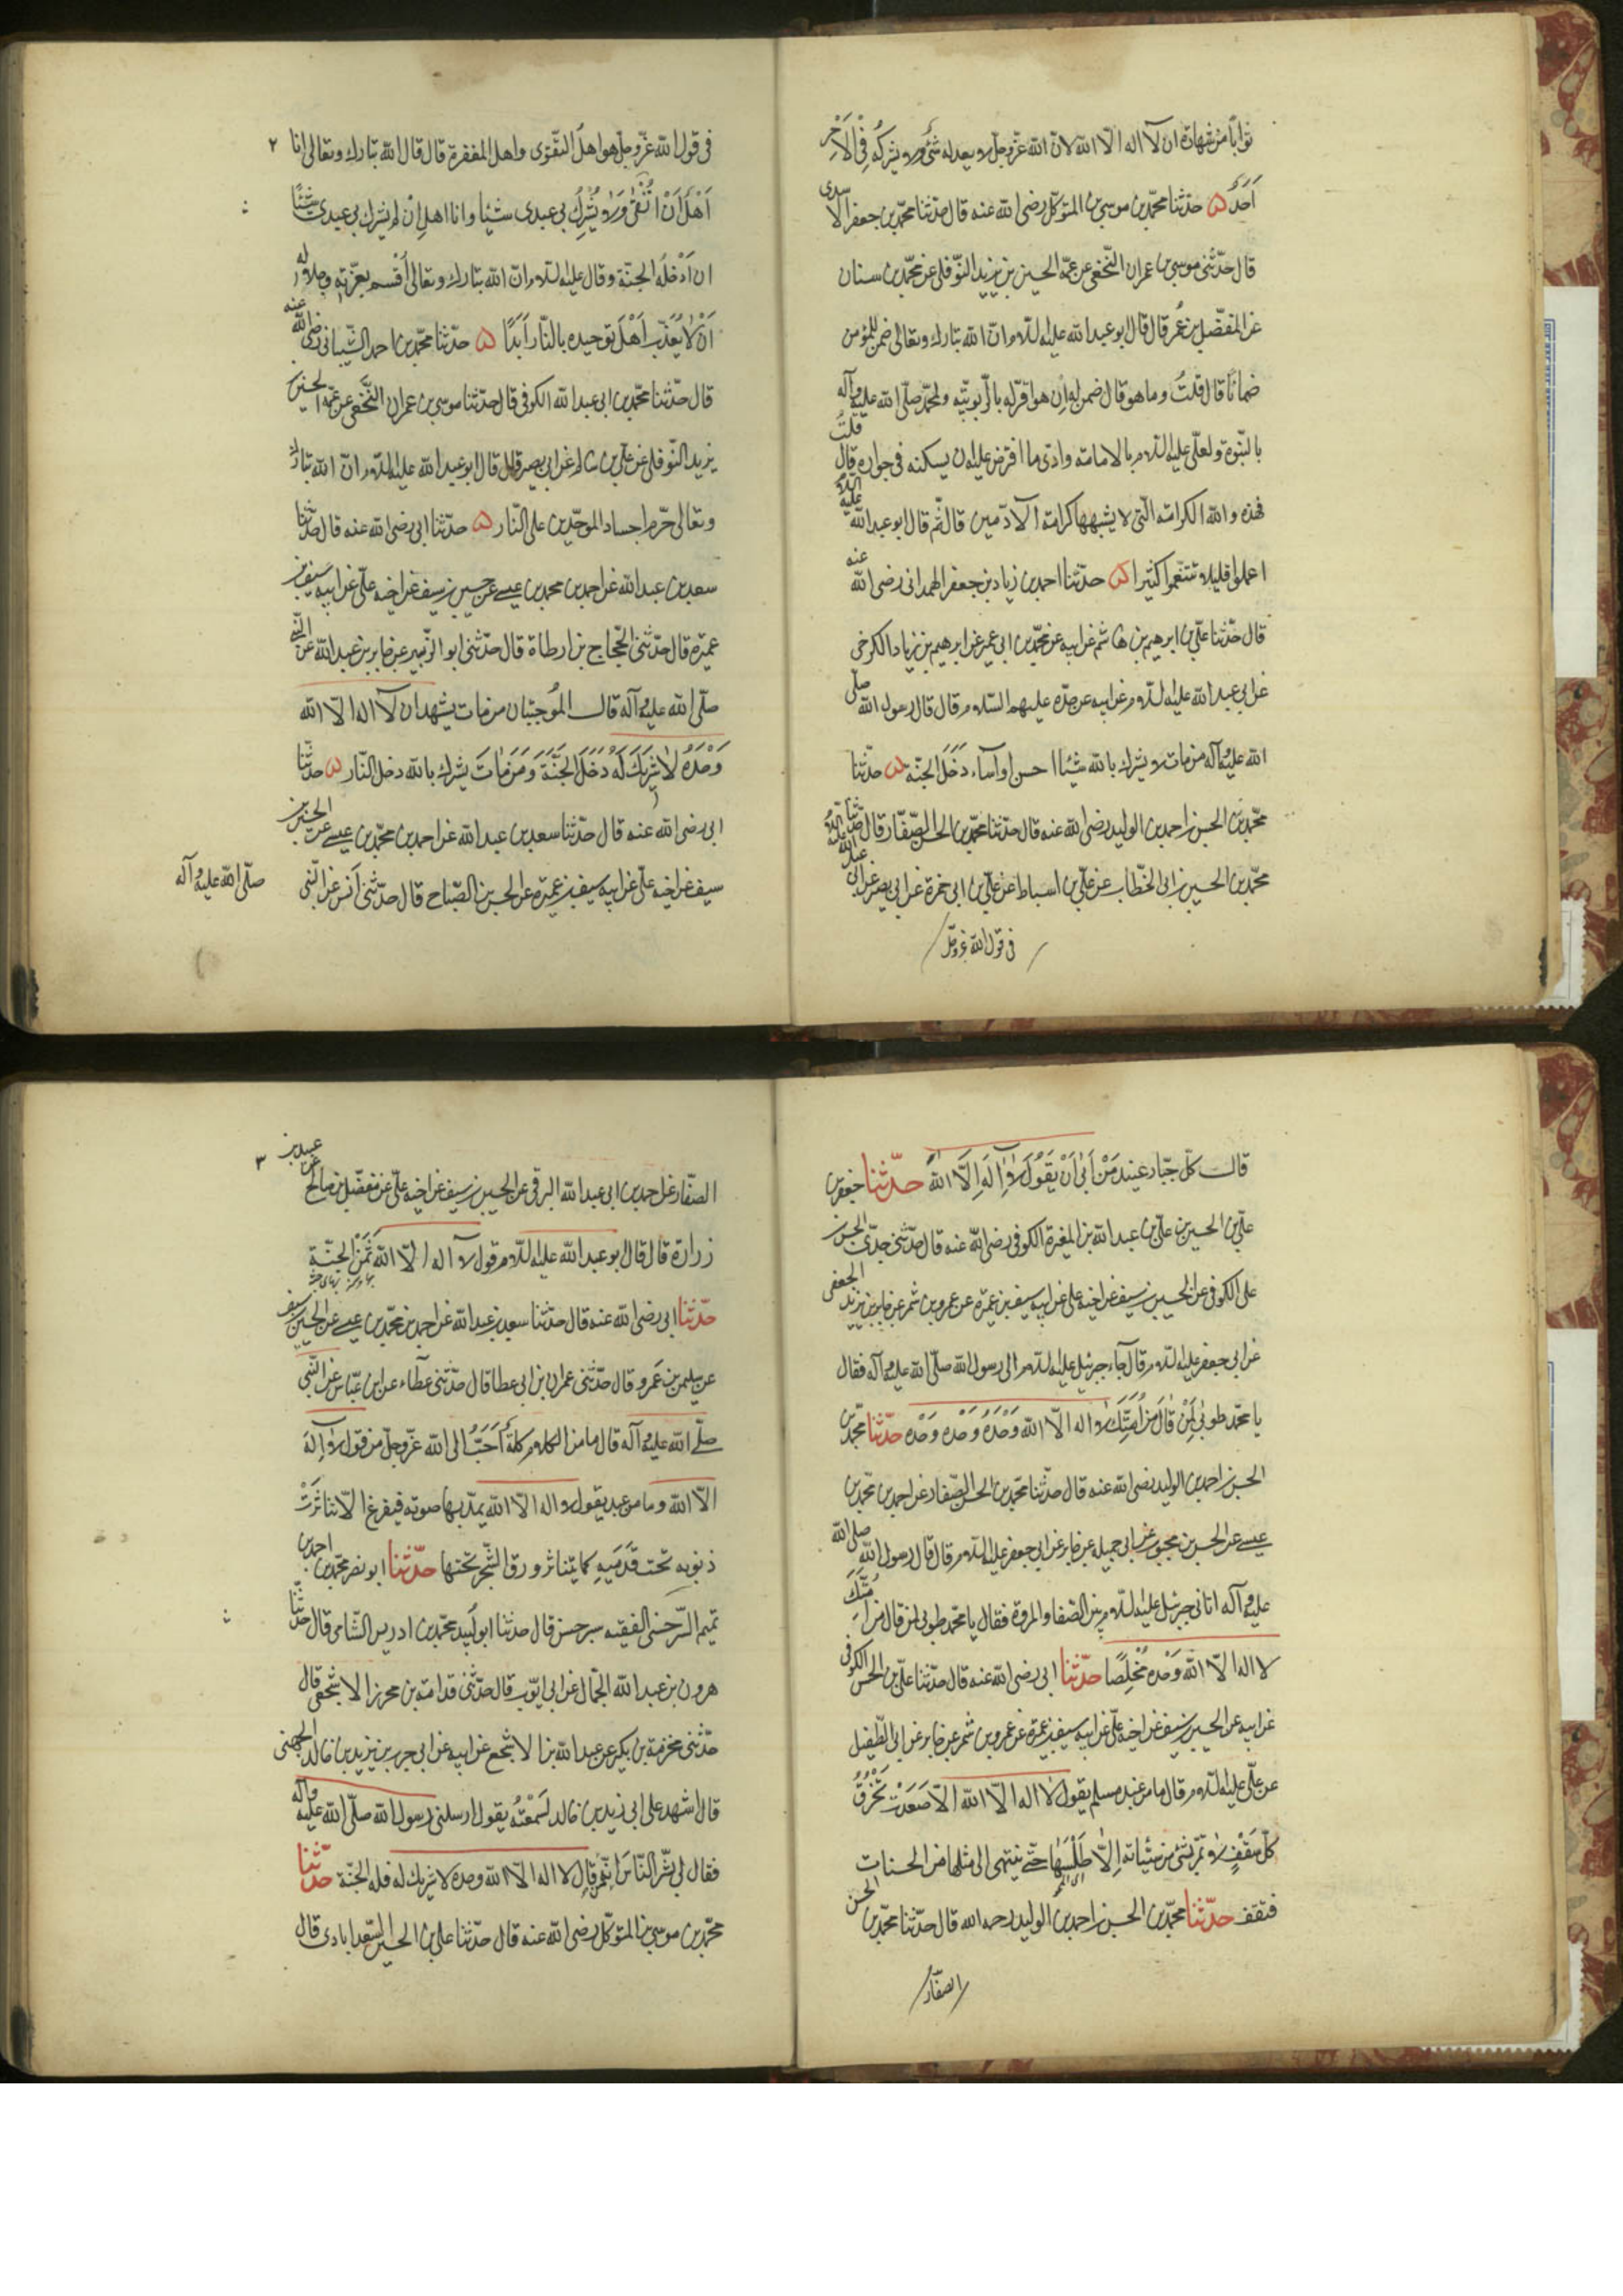 ثوابا من شهادة ان لا اله الا الله لان الله عزّ وجلّ لا يعدله شئ ولا يشركه فى الامر
اَحَدٌ ۵ حدّثنا محمّد بن موسى بن المتوكّل رضى الله عنه قال حدّثنا محمّد بن جعفر الاسدى
قال حدّثنى موسى بن عمران النّخعى عن عمّه الحسين بن يزيد النّوفلى عن محمّد بن سنان
عن المفضّل بن عمر قال قال ابو عبد الله عليه السّلام انّ الله تبارك وتعالى ضمن للمؤمن
ضمانًا قال قلتُ وما هو قال ضمن له ان هو اقرّ له بالرّبوبيّة ولمحمّد صلّى الله عليه وآله
بالنّبوّة ولعلّى عليه السّلام بالامامة وادّى ما افترض عليه ان يسكنه فى جواره قال قلتُ
فهذه والله الكرامة الّتى لا يشبهها كرامة الآدميين قال ثم قال ابو عبد الله عليه السّلام
اعملوا قليلا تتنعّموا كثيرا ۵ حدّثنا احمد بن زياد بن جعفر الهمدانى رضى الله عنه
قال حدّثنا علىّ بن ابرهيم بن هاشم عن ابيه عن محمّد بن ابى عمير عن ابرهيم بن زياد الكرخى
عن ابى عبد الله عليه السّلام عن ابيه عن جدّه عليهم السّلام قال قال رسول الله صلّى
الله عليه وآله من مات لا يشرك بالله شيئا احسن او اساء دَخَلَ الجنّة ۵ حدّثنا
محمّد بن الحسن بن احمد بن الوليد رضى الله عنه قال حدّثنا محمّد بن الحسن الصّفّار قال حدّثنا
محمّد بن الحسين بن ابى الخطّاب عن علىّ بن اسباط عن علىّ بن ابى حمزة عن ابى بصير عن ابى عبد الله عليه السّلام
فى قول الله عزّ وجلّ
٢
فى قول الله عزّ وجلّ هو اهل التّقوى واهل المغفرة قال قال الله تبارك وتعالى انا
اَهْلٌ اَنْ اُتَّقى ولا يُشْرِكُ بى عبدى شيئا وانا اهل ان لم يشرك بى عبدى شيئًا
ان اُدْخِلَه الجنّة وقال عليه السّلام انّ الله تبارك وتعالى اَقْسم بعزّته وجلاله
اَنْ لا يُعَذِّبَ اَهْلَ توحيده بالنّار اَبَدًا ۵ حدّثنا محمّد بن احمد الشّيبانى رضى الله عنه
قال حدّثنا محمّد بن ابى عبد الله الكوفى قال حدّثنا موسى بن عمران النّخعى عن عمّه الحسين بن
يزيد النّوفلى عن علىّ بن سالم عن ابى بصير قال قال ابو عبد الله عليه السّلام انّ الله تبارك
وتعالى حرّم اجساد الموحّدين على النّار ۵ حدّثنا ابى رضى الله عنه قال حدّثنا
سعد بن عبد الله عن احمد بن محمد بن عيسى عن حسين بن سيف عن اخيه علىّ عن ابيه سيف بن
عميرة قال حدّثنى الحجّاج بن ارطاة قال حدّثنى ابو الزّبير عن جابر بن عبد الله عن النّبى
صلّى الله عليه وآله قال الموجبتان من مات يشهد ان لا اله الّا الله
وَحْدَهُ لا شَرِيكَ لَهُ دَخَلَ الجَنَّةَ وَمَن مَاتَ يشرك بالله دخل النّار ۵ حدّثنا
ابى رضى الله عنه قال حدّثنا سعد بن عبد الله عن احمد بن محمّد بن عيسى عن الحسين بن
سيف عن اخيه علىّ عن ابيه سيف بن عميرة عن الحسن بن الصّباح قال حدّثنى اَنَس عن النّبى
صلّى الله عليه وآله
قال كلّ جبّار عنيد مَنْ اَبى اَنْ يَقُولَ لا اِلَهَ اِلَّا الله حدّثنا جعفر بن
علىّ بن الحسين بن علىّ بن عبد الله بن المغيرة الكوفى رضى الله عنه قال حدّثنى جدّى الحسن بن
على الكوفى عن الحسين بن سيف عن اخيه على عن ابيه سيف بن عميرة عن عمرو بن شمر عن جابر بن يزيد الجعفى
عن ابى جعفر عليه السّلام قال جاء جبرئيل عليه السّلام الى رسول الله صلّى الله عليه وآله فقال
يا محمّد طوبى لِمَنْ قالَ مِن اُمَّتِكَ لا اله الّا الله وَحْدَهُ وَحْدَه وَحْدَه حدّثنا محمّد بن
الحسن بن احمد بن الوليد رضى الله عنه قال حدّثنا محمّد بن الحسن الصّفار عن احمد بن محمّد بن
عيسى عن الحسن بن محبوب عن ابى جميلة عن جابر عن ابى جعفر عليه السّلام قال قال رسول الله صلّى الله
عليه وآله اتانى جبرئيل عليه السّلام بين الصّفا والمروة فقال يا محمّد طوبى لمن قال من اُمَّتِكَ
لا اله الّا الله وَحْده مُخْلِصًا حدّثنا ابى رضى الله عنه قال حدّثنا علىّ بن الحسن الكوفى
عن ابيه عن الحسين بن سيف عن اخيه علىّ عن ابيه سيف بن عميرة عن عمرو بن شمر عن جابر عن ابى الطّفيل
عن علىّ عليه السّلام قال ما من عبد مسلم يقول لا اله الّا الله الّا صَعَدَتْ تَخْرُقُ
كلّ سَقْفٍ لا تمرّ بشئ من سيّئاته اِلَّا طَلَسَتْها حتّى ينتهى الى مثلها من الحسنات
فتقف حدّثنا محمّد بن الحسن بن احمد بن الوليد رحمه الله قال حدّثنا محمّد بن الحسن
الصفّار
٣
الصّفّار عن احمد بن ابى عبد الله البرقى عن الحسين بن سيف عن اخيه علىّ عن مفضّل بن صالح عن عبيد بن
زرارة قال قال ابو عبد الله عليه السّلام قول لا اله الّا الله ثَمَنُ الجنّة
حدّثنا ابى رضى الله عنه قال حدّثنا سعد بن عبد الله عن احمد بن محمّد بن عيسى عن الحسين بن سيف
عن سليمن بن عَمرو قال حدّثنى عمران بن ابى عطا قال حدّثنى عطاء عن ابن عبّاس عن النّبى
صلّى الله عليه وآله قال ما من الكلام كلمة اَحَبُّ الى الله عزّ وجلّ من قول لا اِلهَ
الّا الله وما من عبد يقول لا اله الّا الله يمدّ بها صوته فيفرغ الّا تناثَرَتْ
ذنوبه تحت قَدَمَيهِ كما يتناثر ورق الشّجر تحتها حدّثنا ابو نصر محمّد بن احمد بن
تميم السّرخسى الفقيه بسرخس قال حدثنا ابو لَبيد محمّد بن ادريس الشّامى قال حدّثنا
هرون بن عبد الله الجمّال عن ابى ايّوب قال حدّثنى قدامة بن محرز الاشجعى قال
حدّثنى مخرمة بن بكير عن عبد الله بن الاشجّ عن ابيه عن ابى حرب بن زيد بن خالد الجهنى
قال اشهد على ابى زيد بن خالد لَسَمِعْتُه يقول ارسلنى رسول الله صلّى الله عليه وآله
فقال لى بَشِّر النّاسَ اِنّه مَن قال لا اله الّا الله وحده لا شريك له فله الجنّة حدّثنا
محمّد بن موسى بن المتوكّل رضى الله عنه قال حدّثنا على بن الحسين السّعدابادى قال